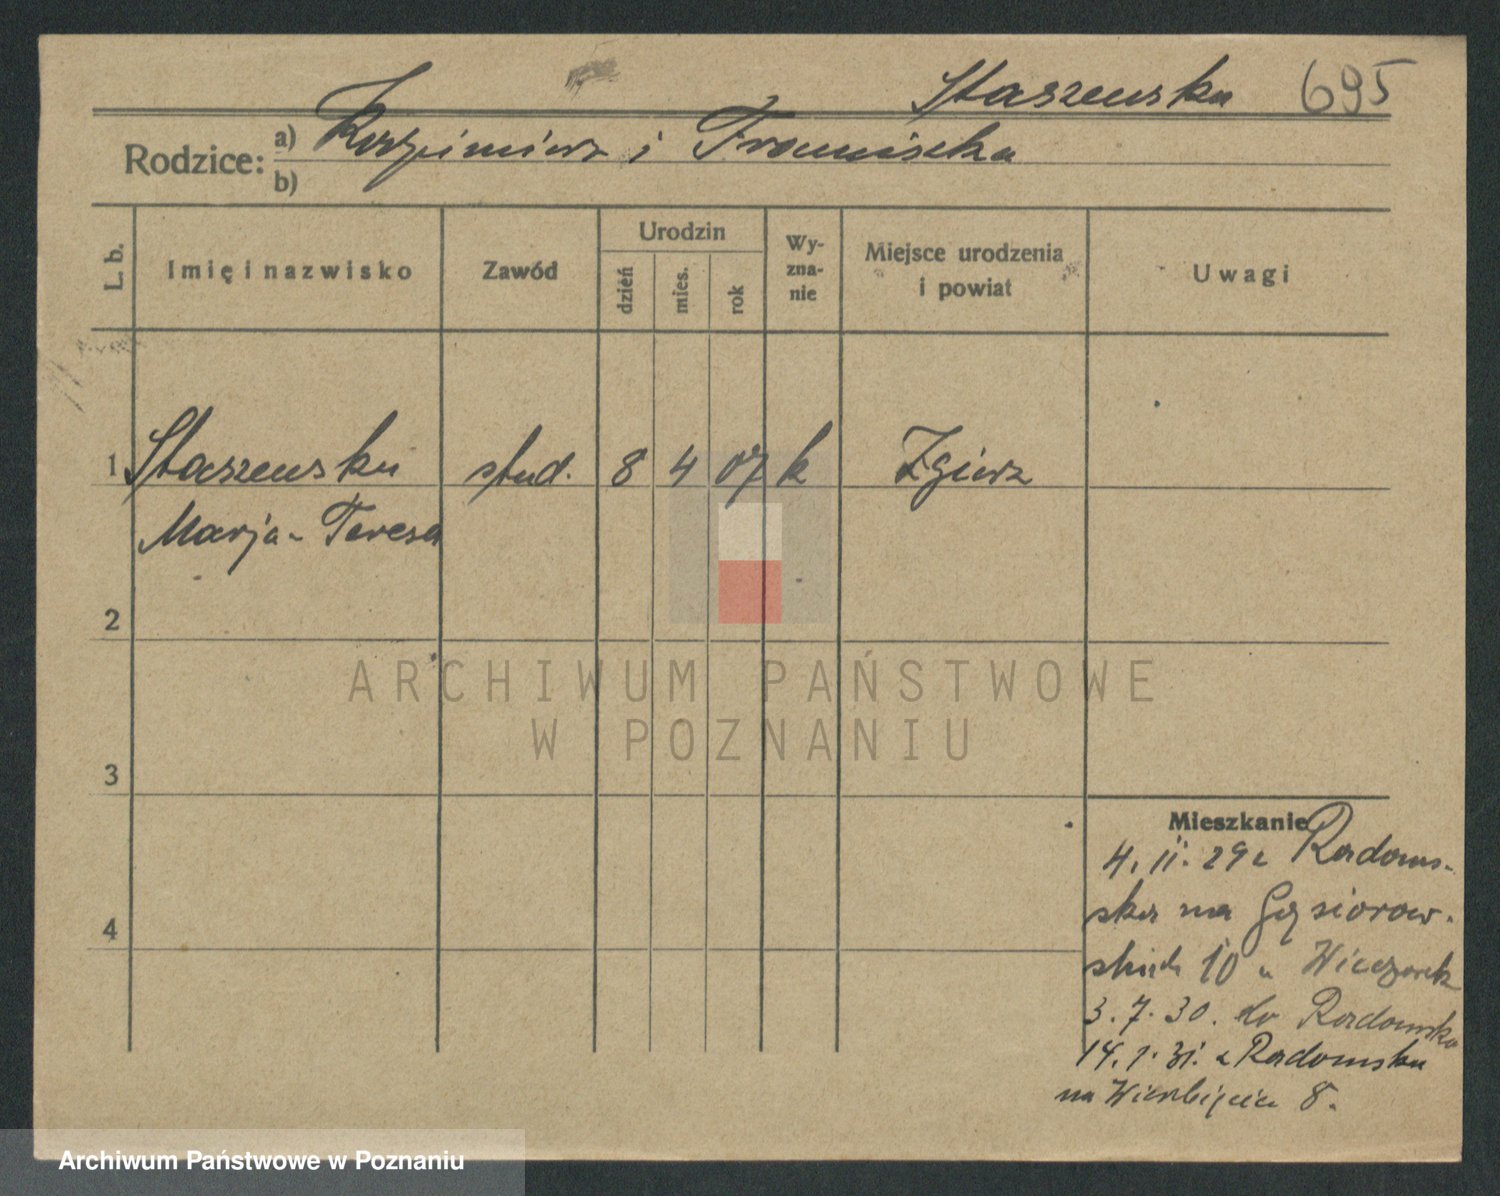 Staszewska 695
Rodzice: a) Kazimierz i Franciszka
b)
L. b. Imię i nazwisko Zawód Urodzin dzień mies. rok Wyznanie Miejsce urodzenia i powiat Uwagi
1 Staszewska stud. 8 4 07 k Zgierz
Marja-Teresa
2
3
4
Mieszkanie
4. 11. 29 z Radoms-
ska na Gąsiorow-
skich 10 u Wieczorek
3. 7. 30. do Radomska
14. 1. 31. z Radomska
na Wierzbięcice 8.
ARCHIWUM PAŃSTWOWE
W POZNANIU
Archiwum Państwowe w Poznaniu